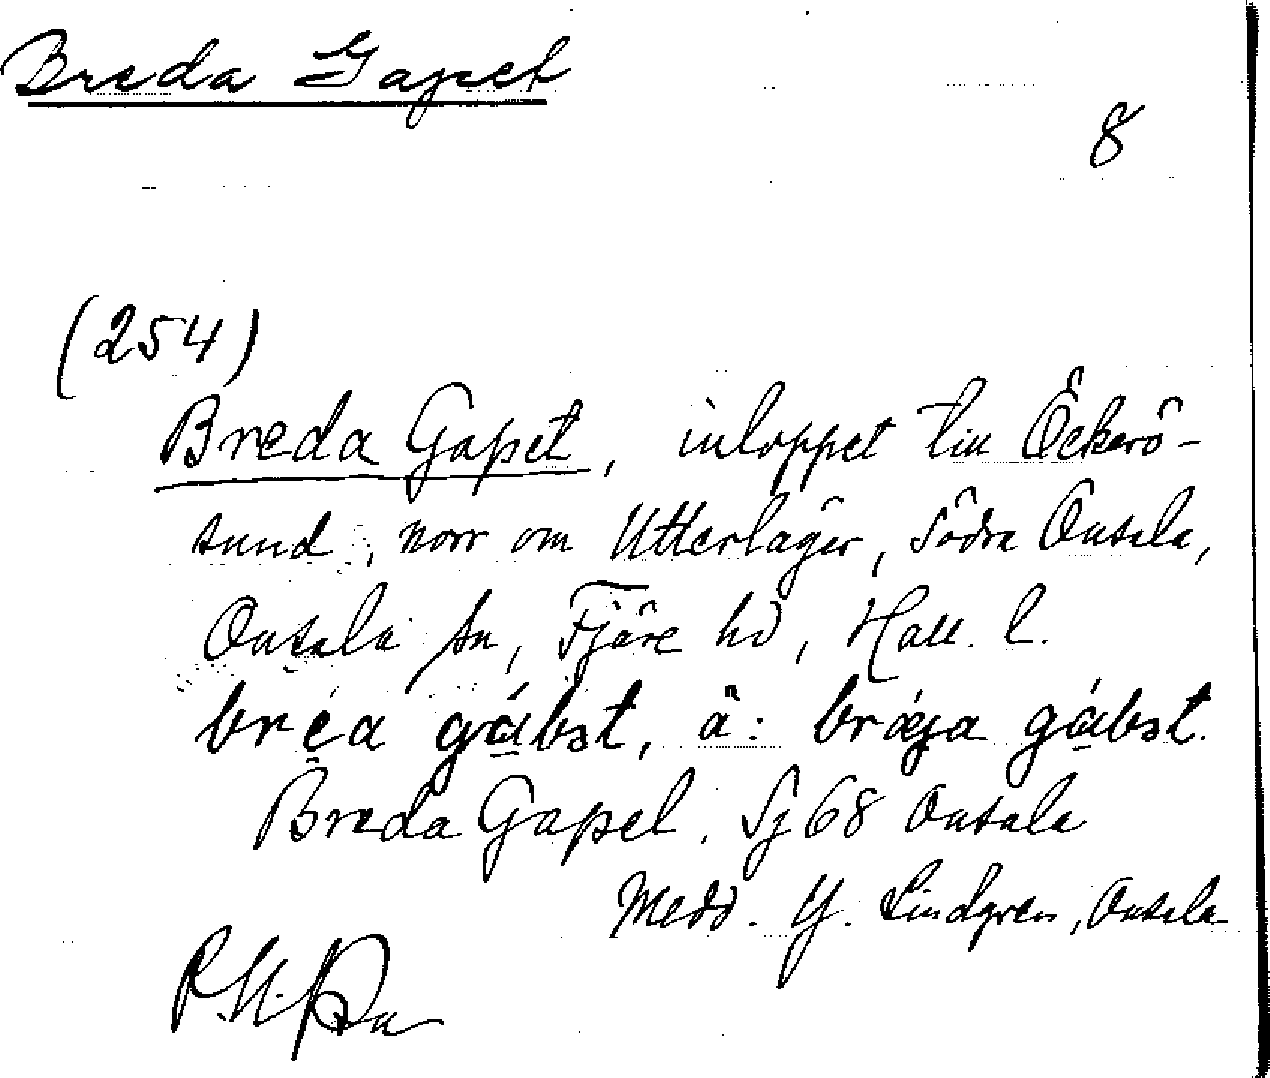 Breda Gapet
8
(254)
Breda Gapet, inloppet till Öckerö-
sund, norr om Utterlager, Södra Onsala,
Onsala sn, Fjäre hd, Hall. l.
bréa gábst, ä: brǽja gábst.
Breda Gapet. Sj 68 Onsala
Medd. Y. Lindgren, Onsala